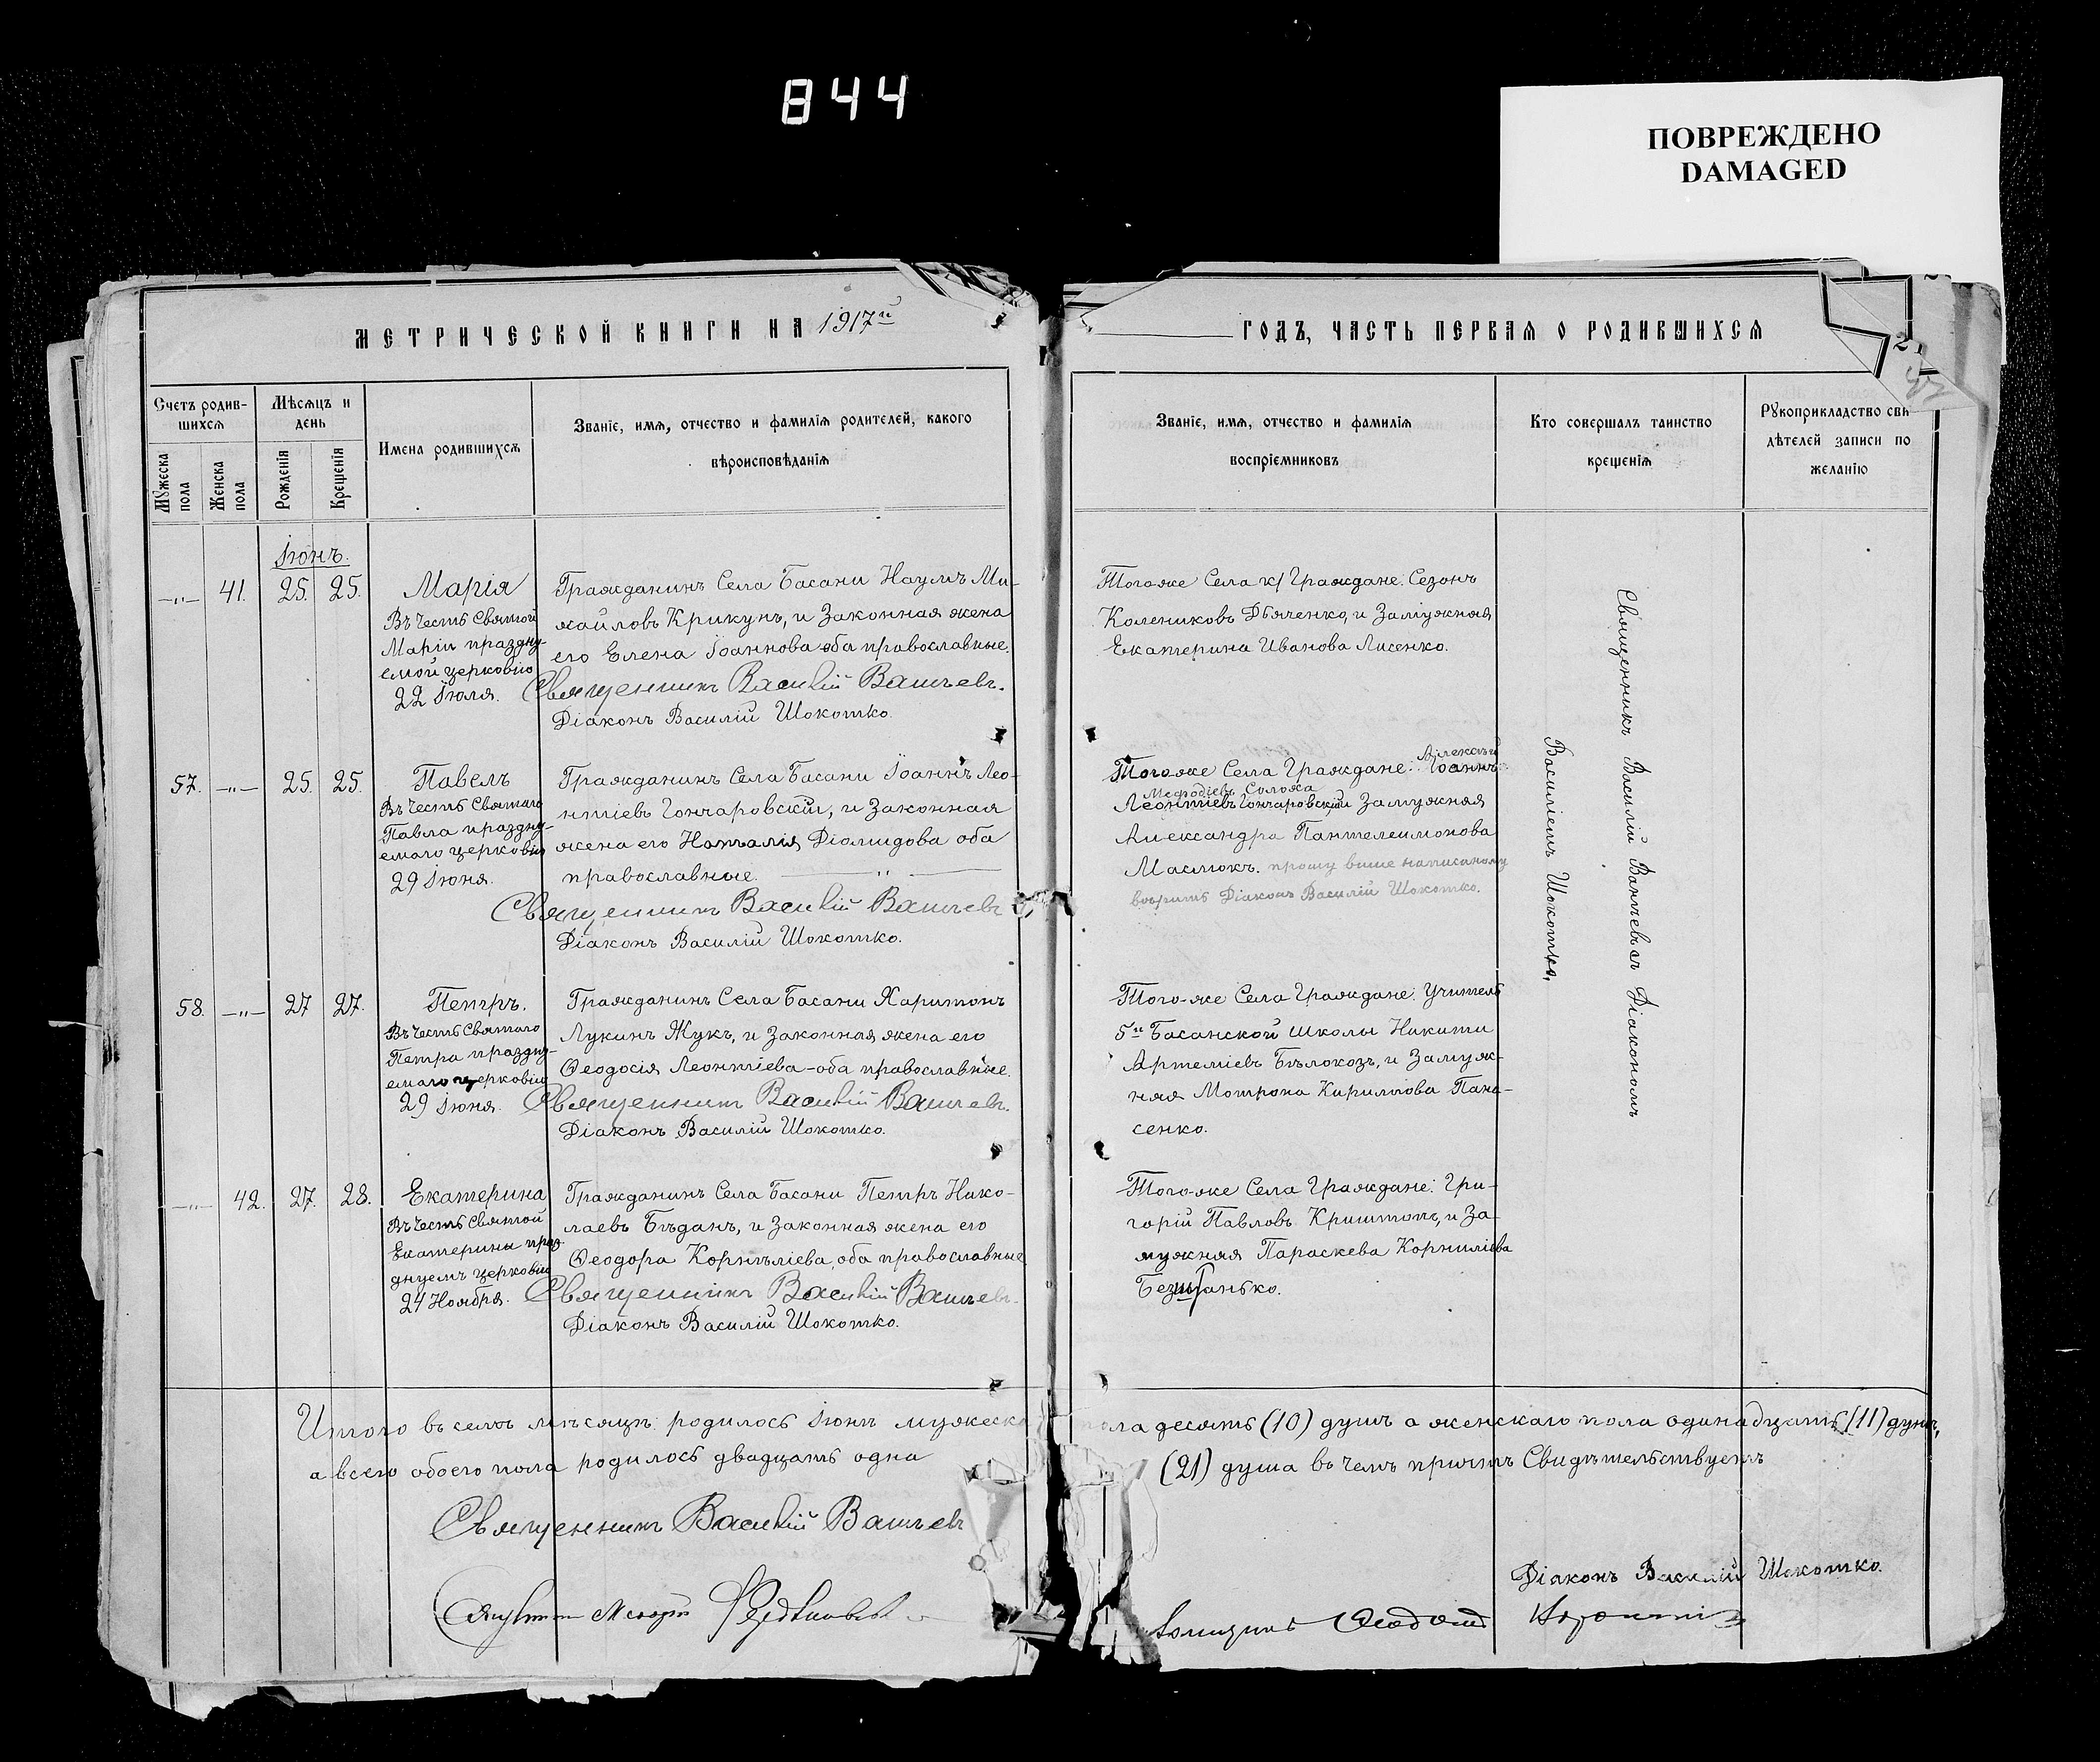 844
ПОВРЕЖДЕНО
DAMAGED
МЕТРИЧЕСКОЙ КНИГИ НА 1917й
ГОДЪ, ЧАСТЬ ПЕРВАЯ О РОДИВШИХСЯ
Счетъ родив-
шихся
Мѣсяцъ и
день
Имена родившихся
Званіе, имя, отчество и фамилія родителей, какого
вѣроисповѣданія
Мужеска
пола
Женска
пола
Рожденія
Крещенія
Званіе, имя, отчество и фамилія
воспріемниковъ
Кто совершалъ таинство
крещенія
Рукоприкладство сви
дѣтелей записи по
желанію
Іюнь.
—„— 41. 25. 25.
Марія
Въ Честь Святой
Маріи праздну-
емой церковію
22 Іюля.
Гражданинъ Села Басани Наумъ Ми-
хайловъ Крикунъ, и Законная жена
его Елена Іоаннова оба православные.
Священникъ Василій Ваттъевъ.
Діаконъ Василій Шокотко.
Того-же Села Граждане: Сезонъ
Колениковъ Дьяченко, и Замужняя
Екатерина Иванова Лисенко.
57. —„— 25. 25.
Павелъ
Въ Честь Святаго
Павла праздну-
емаго церковію
29 Іюня.
Гражданинъ Села Басани Іоаннъ Лео-
нтіевъ Гончаровскій, и Законная
жена его Наталія Діомидова оба
православные. — „ —
Священникъ Василій
Діаконъ Василій Шокотко.
Алексѣй
Того-же Села Граждане: Іоаннъ
Мефодіевъ Солоха
Леонтіевъ Гончаровскій и Замужняя
Александра Пантелеимонова
Маслюкъ. прошу више написаному
вѣрить Діаконъ Василій Шокотко.
58. —„— 27 27.
Петръ.
Въ Честь Святаго
Петра праздну-
емаго церковію
29 Іюня.
Гражданинъ Села Басани Харитонъ
Лукинъ Жукъ, и Законная жена его
Ѳеодосія Леонтіева-оба православные.
Священникъ Василій
Діаконъ Василій Шокотко.
Того-же Села Граждане: Учитель
5й Басанской школы Никити
Артеміевъ Бѣлокозъ, и Замуж-
няя Мотрона Кирилова Пана-
сенко.
—„— 42. 27. 28.
Екатерина
Въ Честь Святой
Екатерины праз-
днуемъ церковію
24 Ноября.
Гражданинъ Села Басани Петръ Нико-
лаевъ Бѣданъ, и Законная жена его
Ѳеодора Корнѣліева, оба православные
Священникъ Василій
Діаконъ Василій Шокотко.
Того-же Села Граждане: Гри-
горій Павловъ Криштопъ, и За-
мужняя Параскева Корниліева
Безштанько.
Священникъ Василій Діакономъ
Василіемъ Шокотко,
Итого въ семъ мѣсяцѣ родилось Іюнѣ мужеска пола десять (10) душъ а женскаго пола одинадцать (11) душъ,
а всего обоего пола родилось двадцать одна (21) душа въ чемъ причтъ Свидѣтельствуетъ
Священникъ Василій
Діаконъ Василій Шокотко.